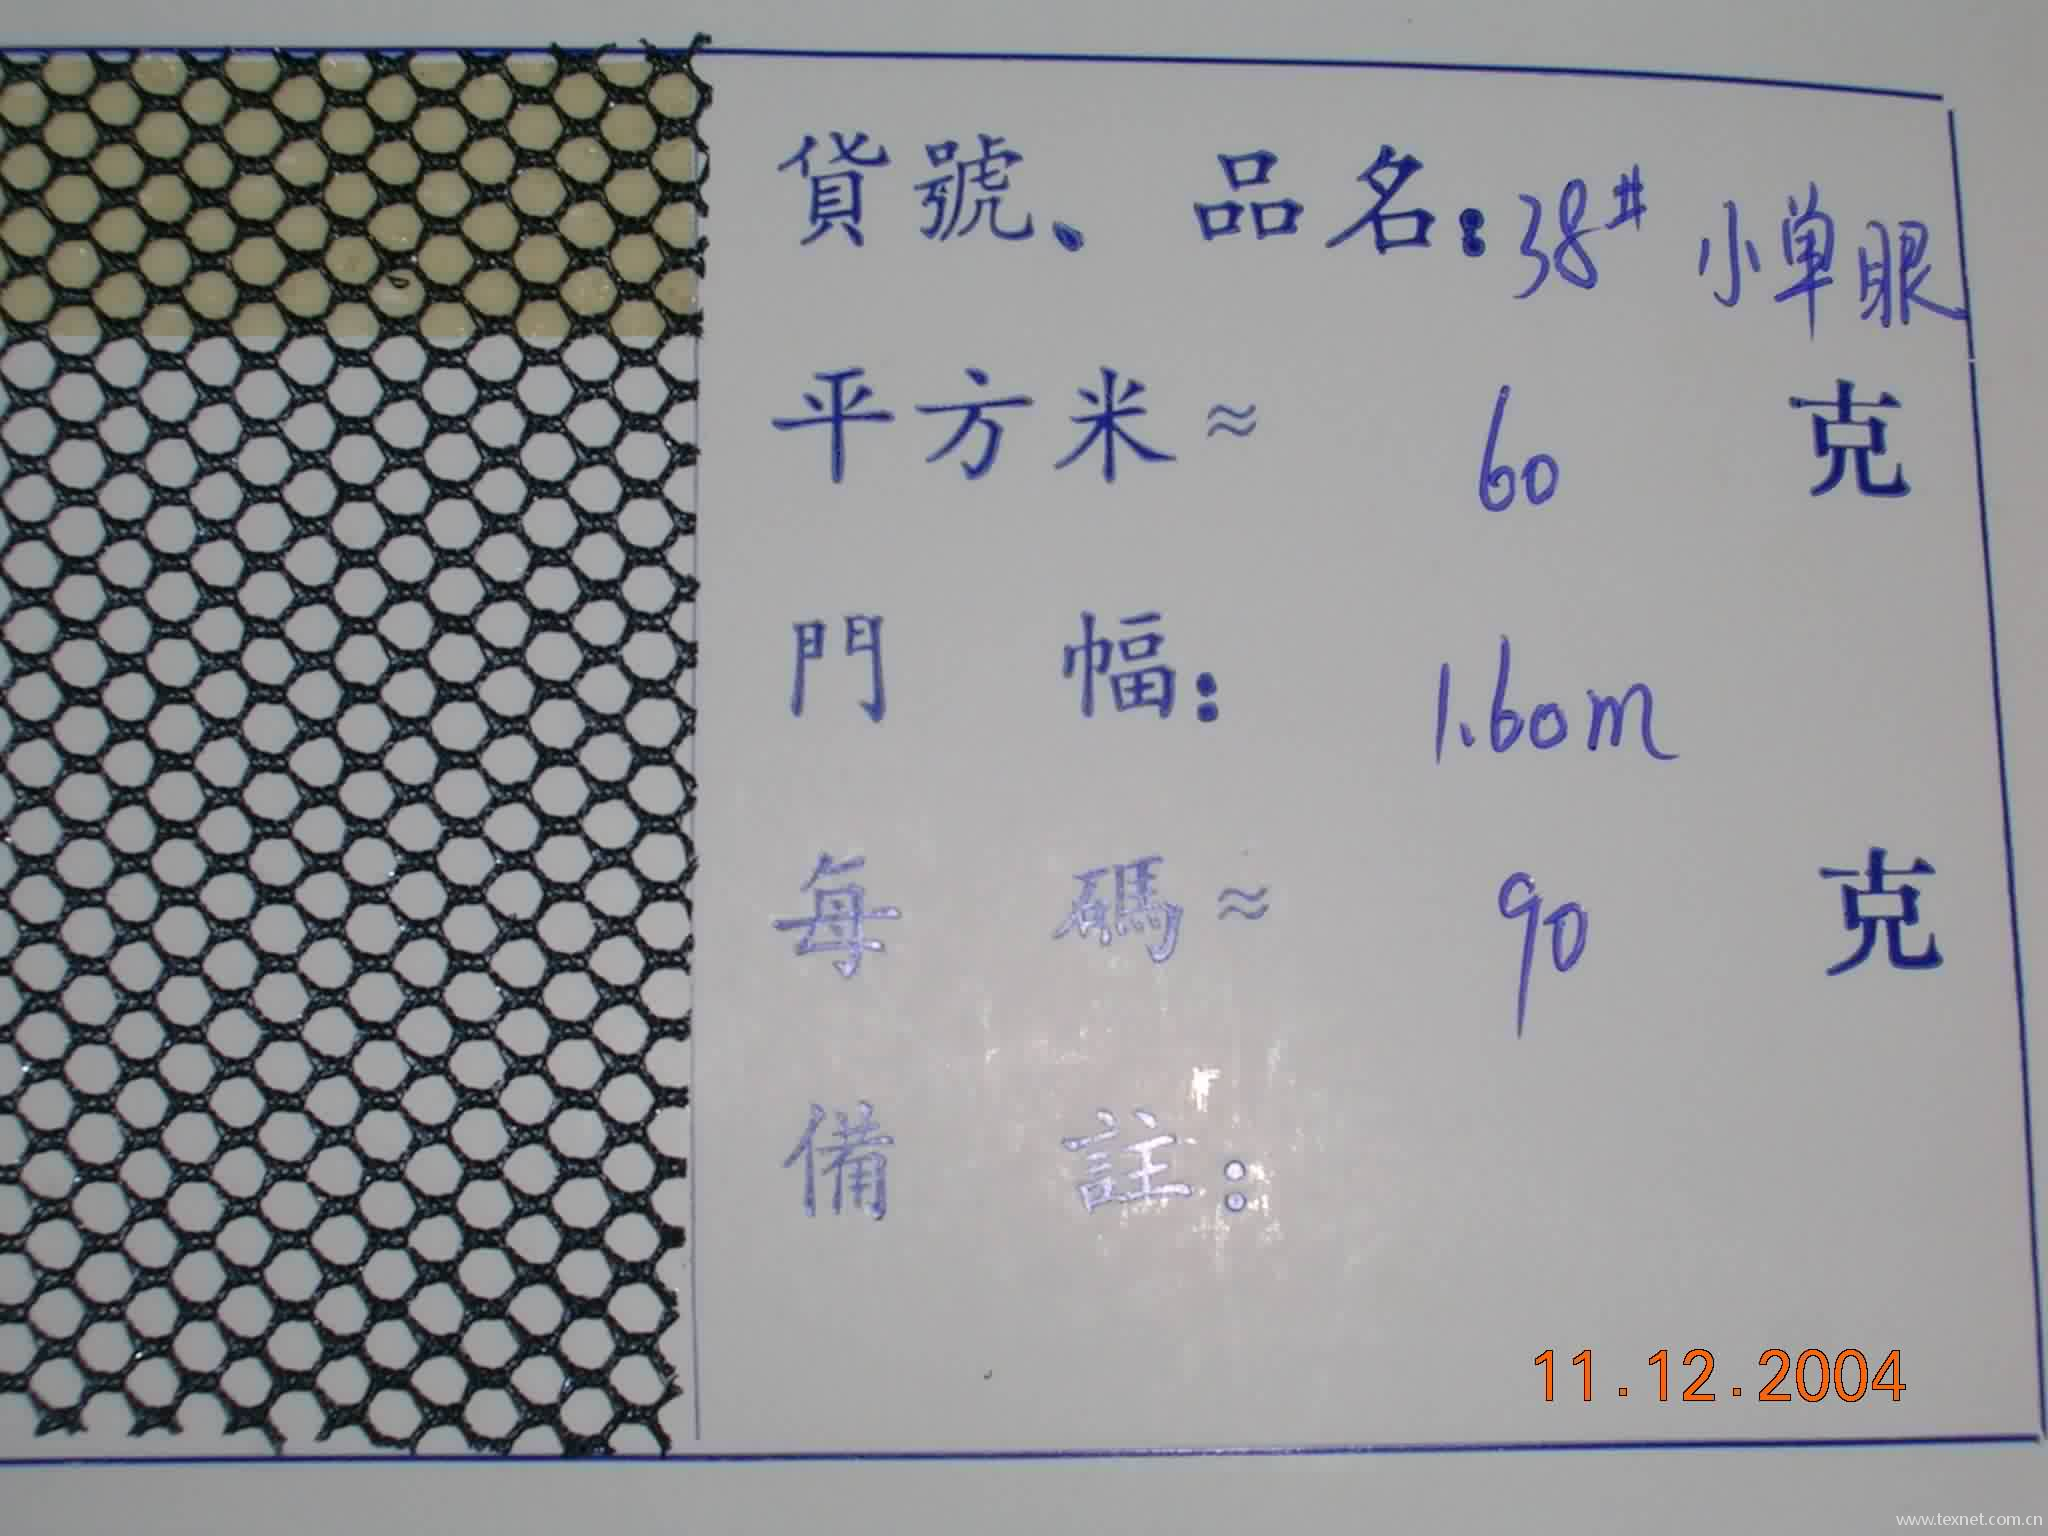 貨號、品名：38# 小单眼
平方米≈ 60 克
門幅：1.60m
每碼≈ 90 克
備註：
11.12.2004
www.texnet.com.cn